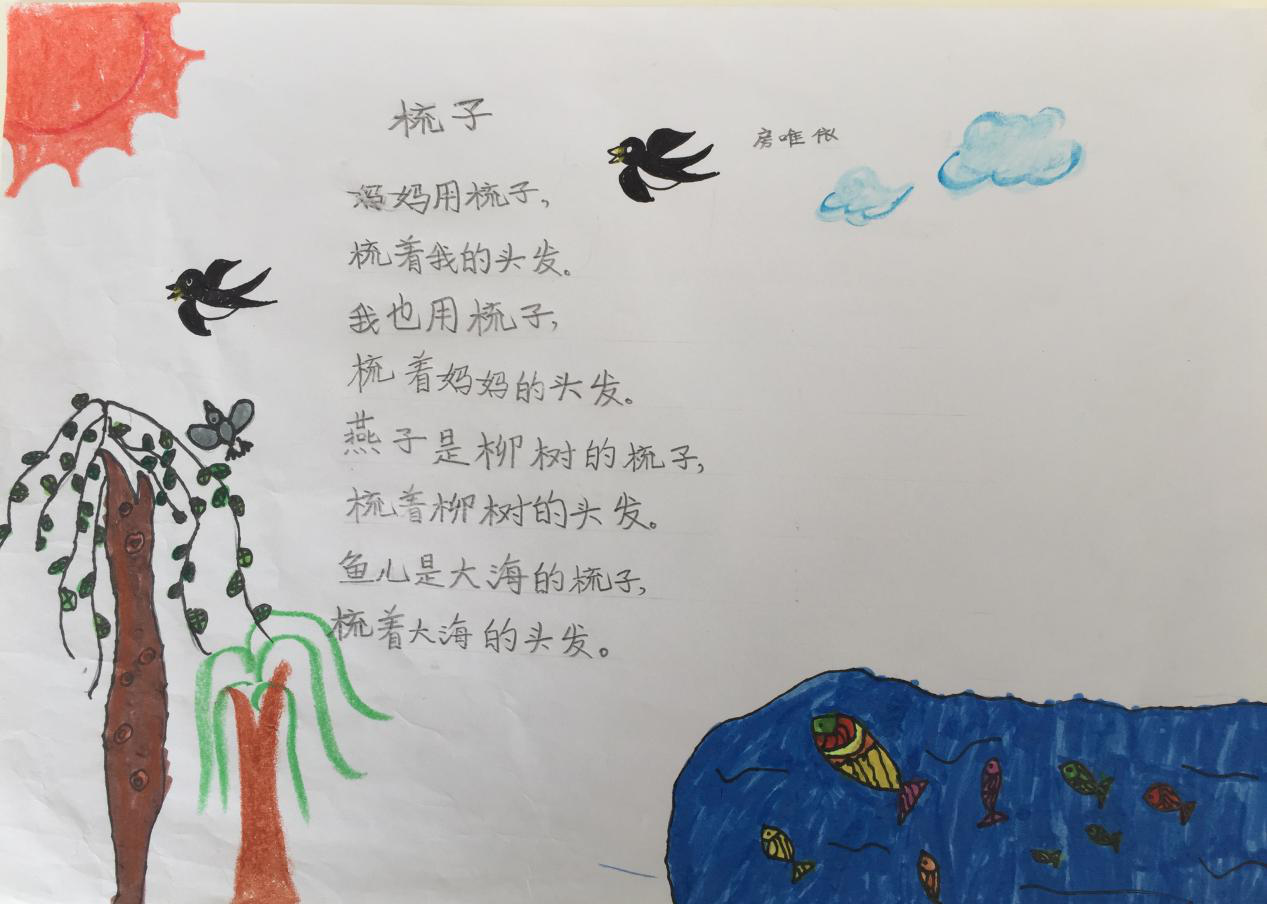 梳子
房唯依
妈妈用梳子，
梳着我的头发。
我也用梳子，
梳着妈妈的头发。
燕子是柳树的梳子，
梳着柳树的头发。
鱼儿是大海的梳子，
梳着大海的头发。